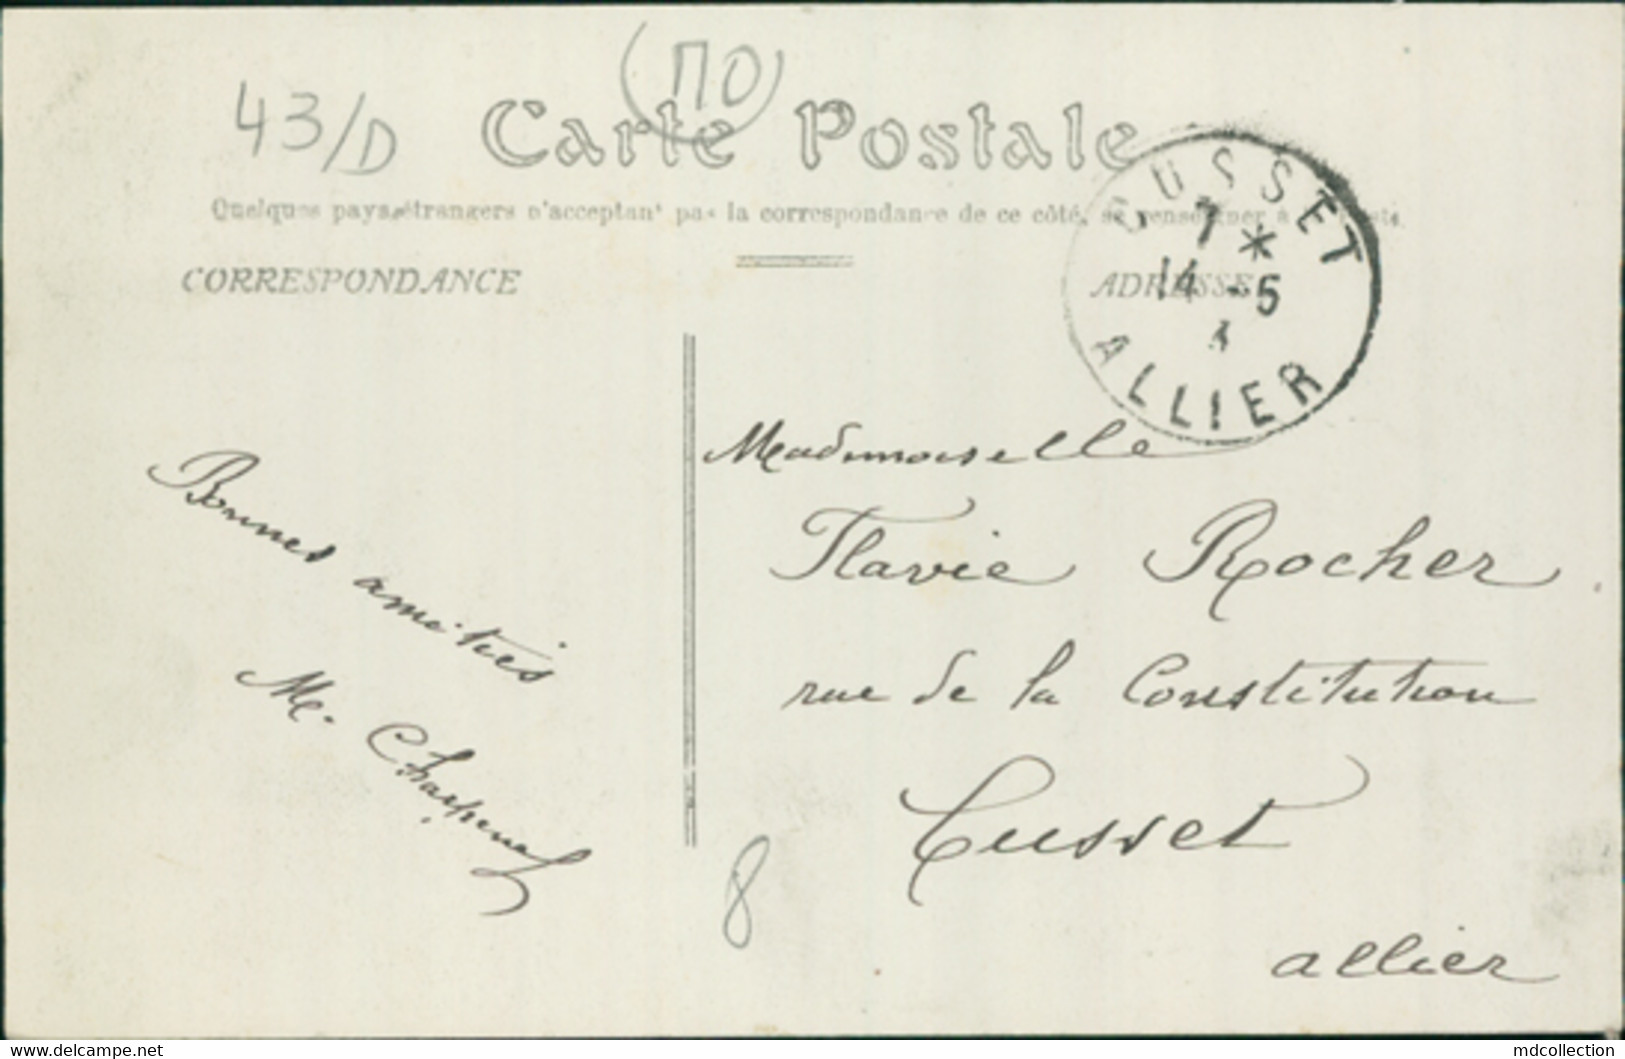 43/D
110
Carte Postale
Quelques pays étrangers n'acceptant pas la correspondance de ce côté, se renseigner à la Poste
CORRESPONDANCE
ADRESSE
CUSSET
7 *
14 -5
ALLIER
Mademoiselle
Flavie Rocher
rue de la Constitution
Cusset
allier
Bonnes amitiés
M.
8
www.delcampe.net
mdcollection